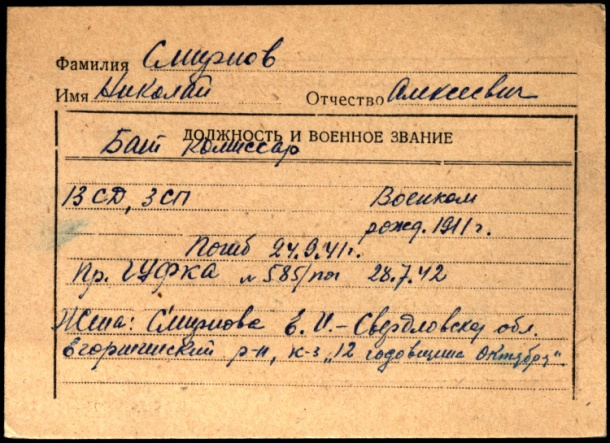 Фамилия Смирнов
Имя Николай Отчество Алексеевич
ДОЛЖНОСТЬ И ВОЕННОЕ ЗВАНИЕ
Бат комиссар
13 СД, 3 СП Военком
рожд. 1911 г.
Погиб 24.9.41 г.
Пр. ГУФКА № 585/пог 28.7.42
Жена: Смирнова Е. И. - Свердловская обл.
Егоршинский р-н, к-з "12 годовщина Октября".